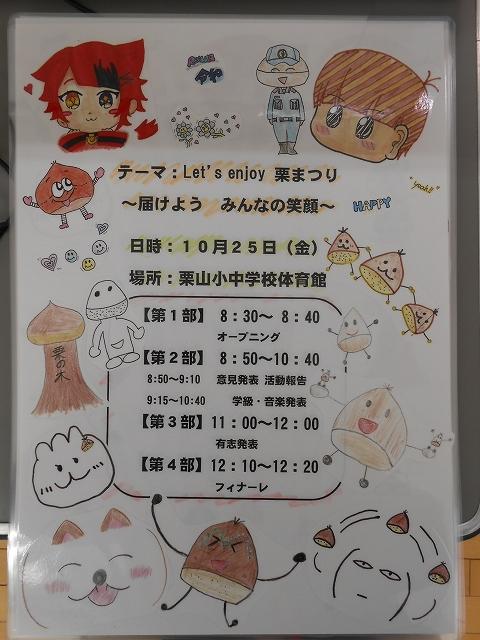 テーマ：Let's enjoy 栗まつり
～届けよう　みんなの笑顔～
"yeah!!"
HAPPY
日時：１０月２５日（金）
場所：栗山小中学校体育館
【第１部】 ８：３０～ ８：４０
オープニング
【第２部】 ８：５０～１０：４０
8:50～9:10　意見発表 活動報告
9:15～10:40　学級・音楽発表
【第３部】１１：００～１２：００
有志発表
【第４部】１２：１０～１２：２０
フィナーレ
栗の木